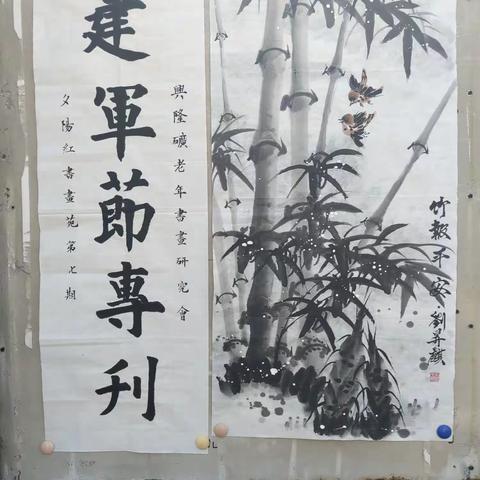 竹報平安 劉昇
興隆礦老年書畫研究會
建軍莭專刊
夕陽红書畫苑第七期